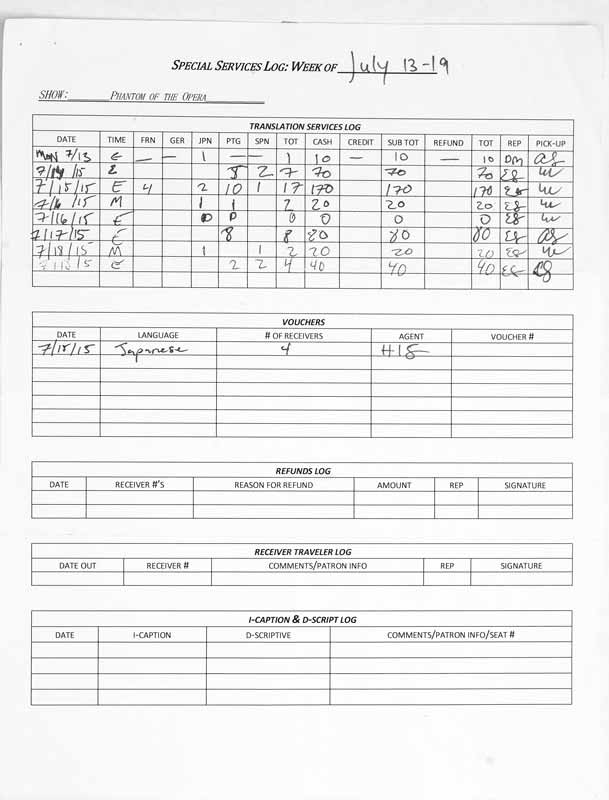 SPECIAL SERVICES LOG: WEEK OF July 13-19
SHOW: PHANTOM OF THE OPERA
TRANSLATION SERVICES LOG
DATE TIME FRN GER JPN PTG SPN TOT CASH CREDIT SUB TOT REFUND TOT REP PICK-UP
MON 7/13 E — — 1 — — 1 10 — 10 — 10 DM
7/14/15 E 5 2 7 70 70 70 ES
7/15/15 E 4 2 10 1 17 170 170 170 ES
7/16/15 M 1 1 2 20 20 20 ES
7/16/15 E 0 0 0 0 0 0 ES
7/17/15 E 8 8 80 80 80 ES
7/18/15 M 1 1 2 20 20 20 ES
E 2 2 4 40 40 40 ES
VOUCHERS
DATE LANGUAGE # OF RECEIVERS AGENT VOUCHER #
7/15/15 Japanese 4 HIS
REFUNDS LOG
DATE RECEIVER #'S REASON FOR REFUND AMOUNT REP SIGNATURE
RECEIVER TRAVELER LOG
DATE OUT RECEIVER # COMMENTS/PATRON INFO REP SIGNATURE
I-CAPTION & D-SCRIPT LOG
DATE I-CAPTION D-SCRIPTIVE COMMENTS/PATRON INFO/SEAT #